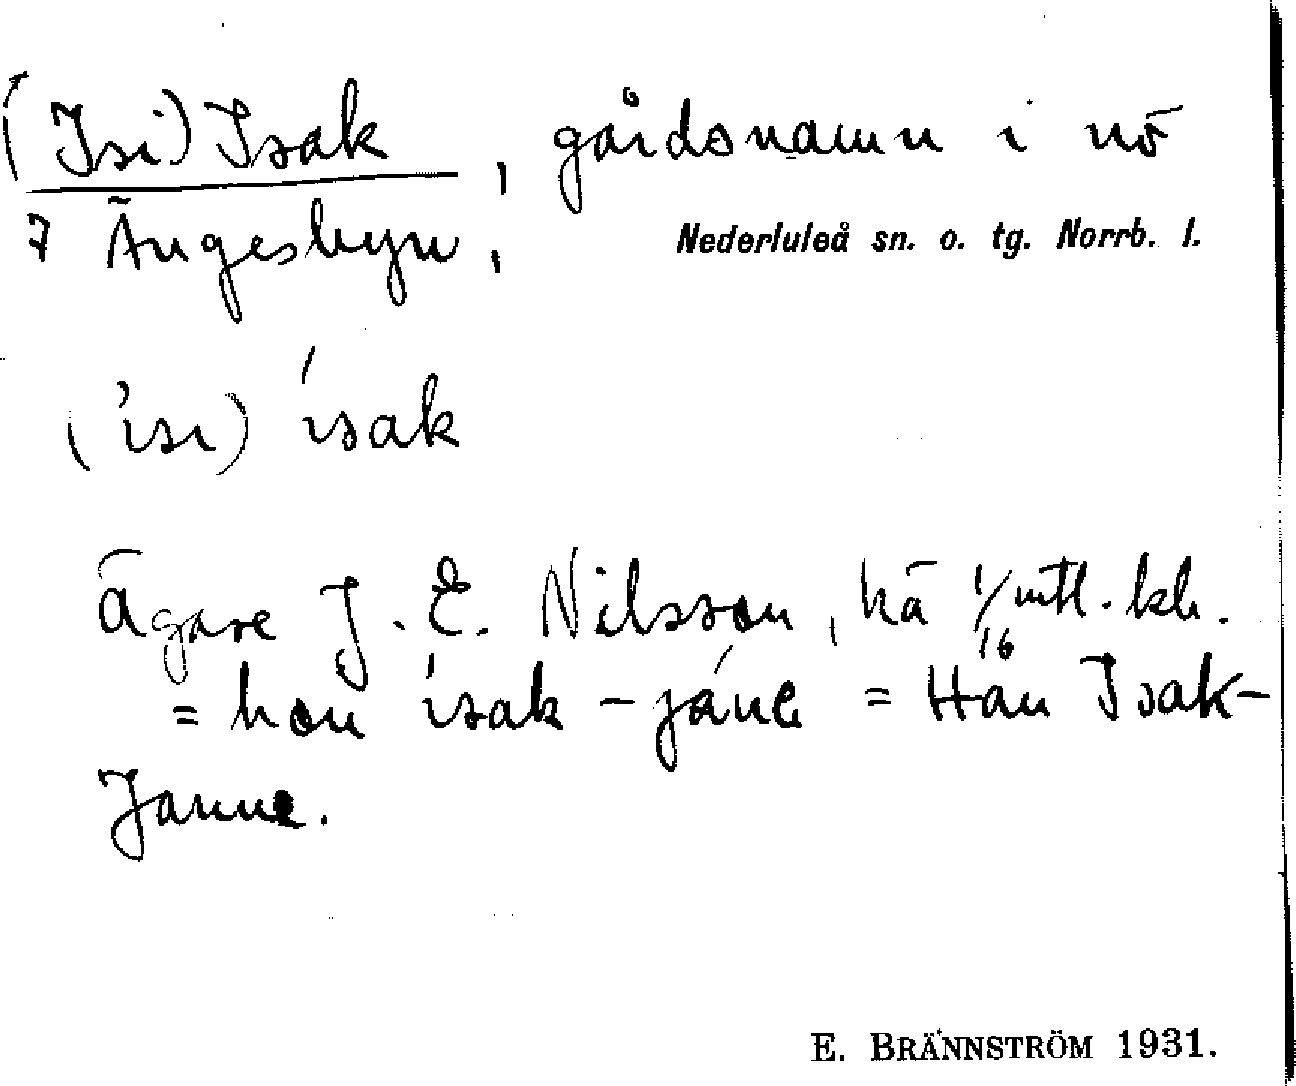 (Isi) Isak, gårdsnamn i nö
7 Ängesbyn,
Nederluleå sn. o. tg. Norrb. l.
(ísi) ísak
Ägare J. E. Nilsson, hä 1/16 mtl. kh.
= han ísak-jáne = Han Isak-
Janne.
E. BRÄNNSTRÖM 1931.